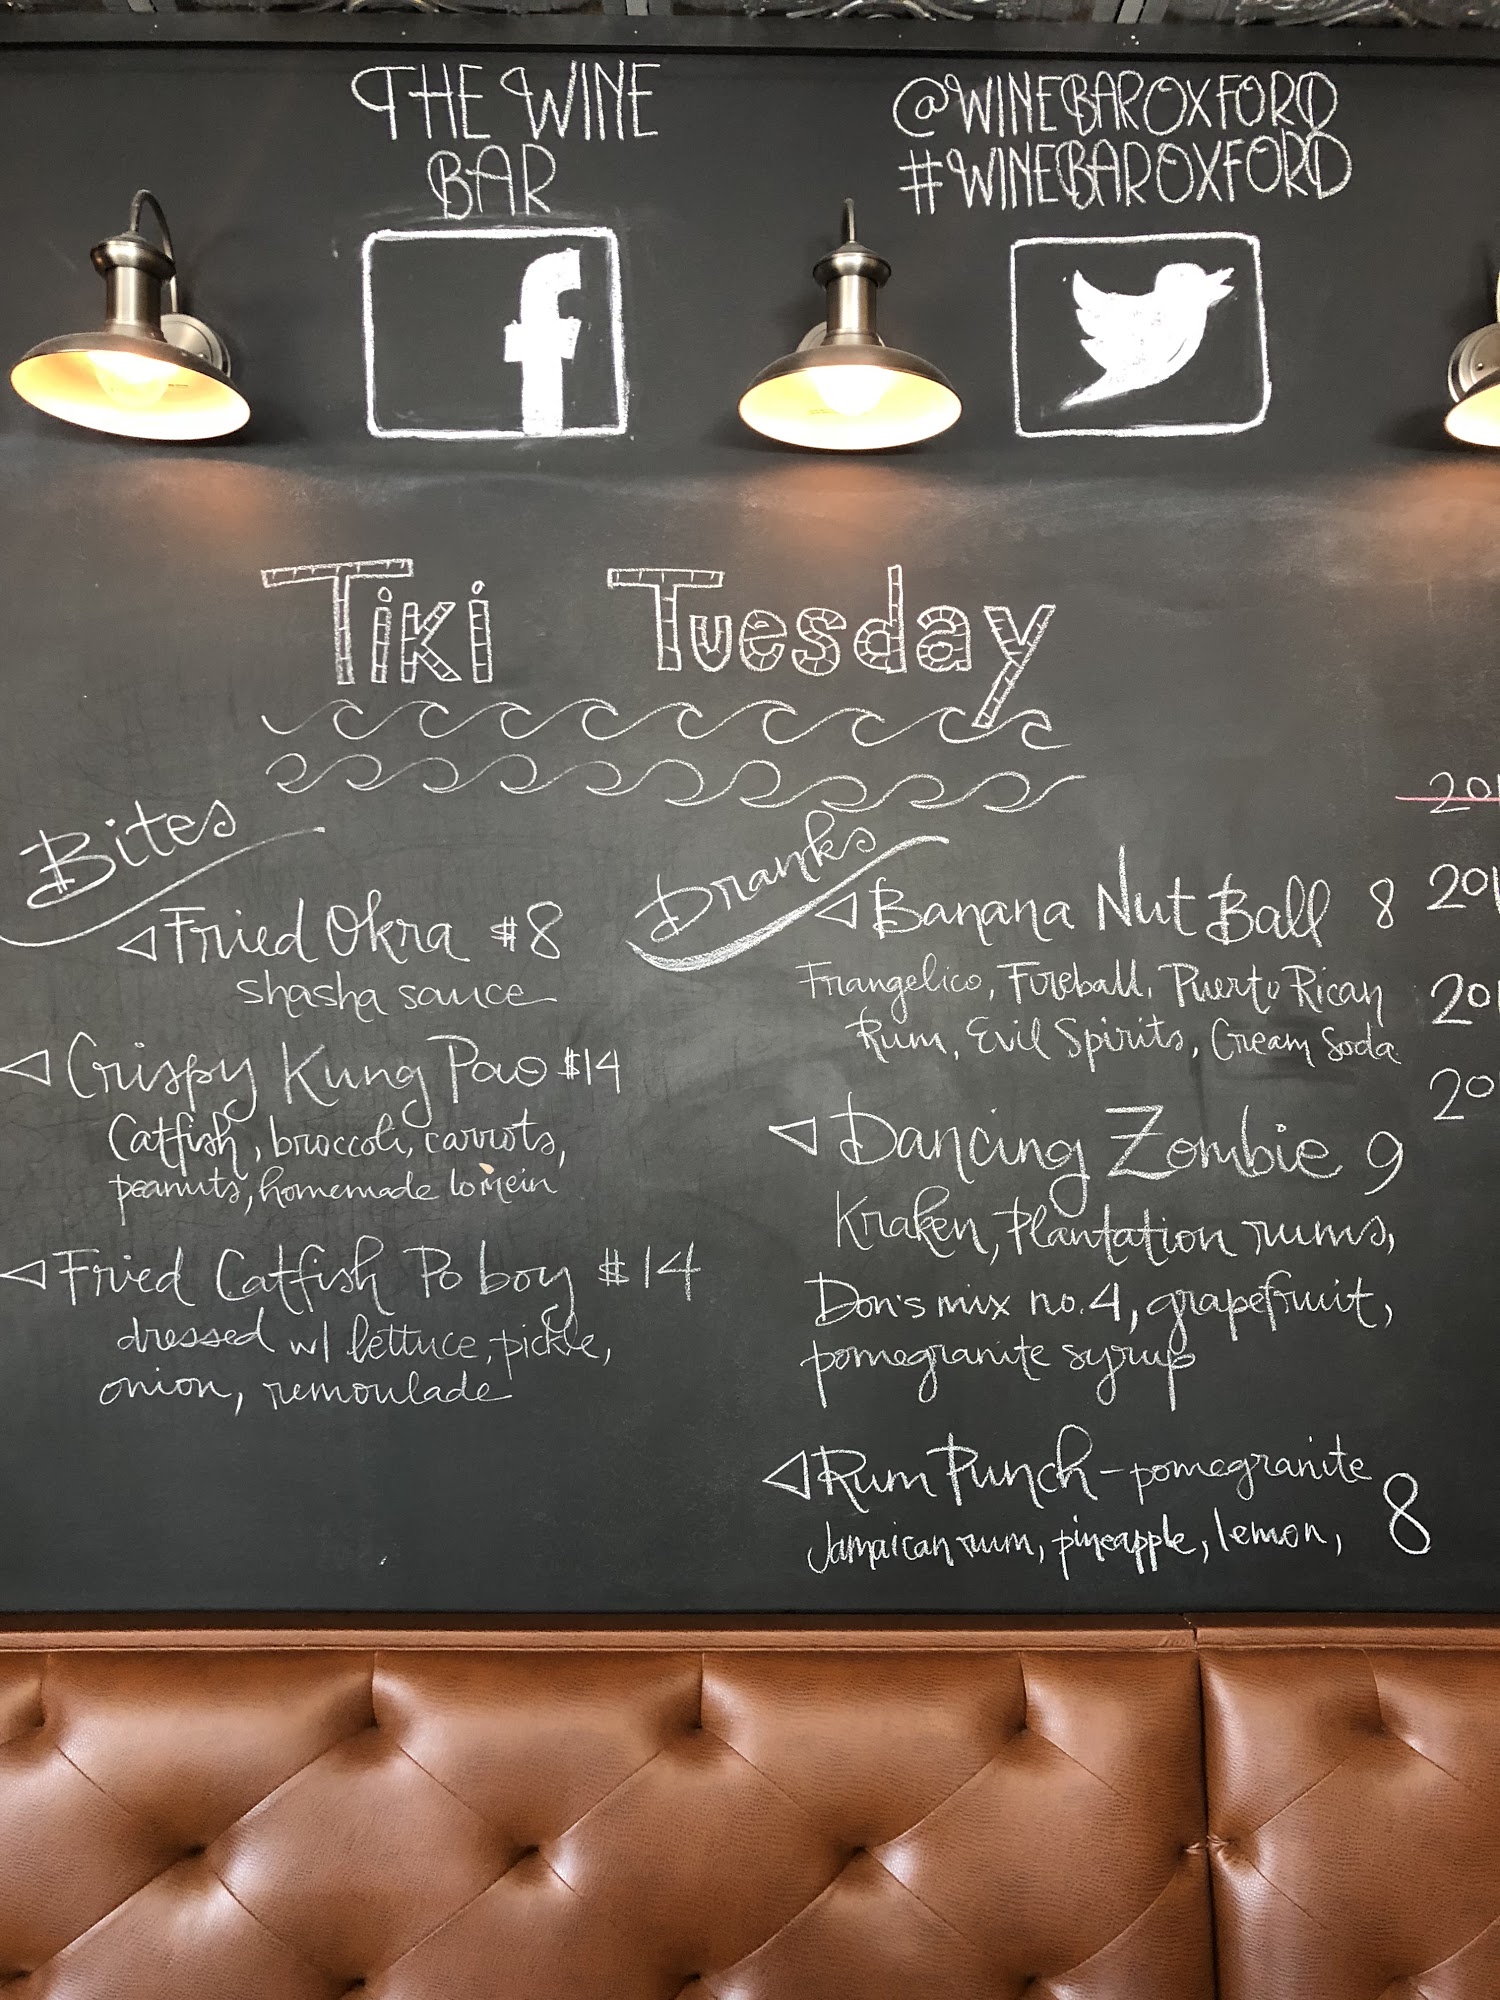 THE WINE
BAR
@WINEBAROXFORD
#WINEBAROXFORD
f
Tiki Tuesday
Bites
Fried Okra $8
shasha sauce
Crispy Kung Pao $14
Catfish, broccoli, carrots,
peanuts, homemade lo mein
Fried Catfish Po boy $14
dressed w/ lettuce, pickle,
onion, remoulade
Dranks
Banana Nut Ball 8
Frangelico, Fireball, Puerto Rican
Rum, Evil Spirits, Cream Soda
Dancing Zombie 9
Kraken, Plantation rums,
Don's mix no. 4, grapefruit,
pomegranite syrup
Rum Punch - pomegranite
Jamaican rum, pineapple, lemon, 8